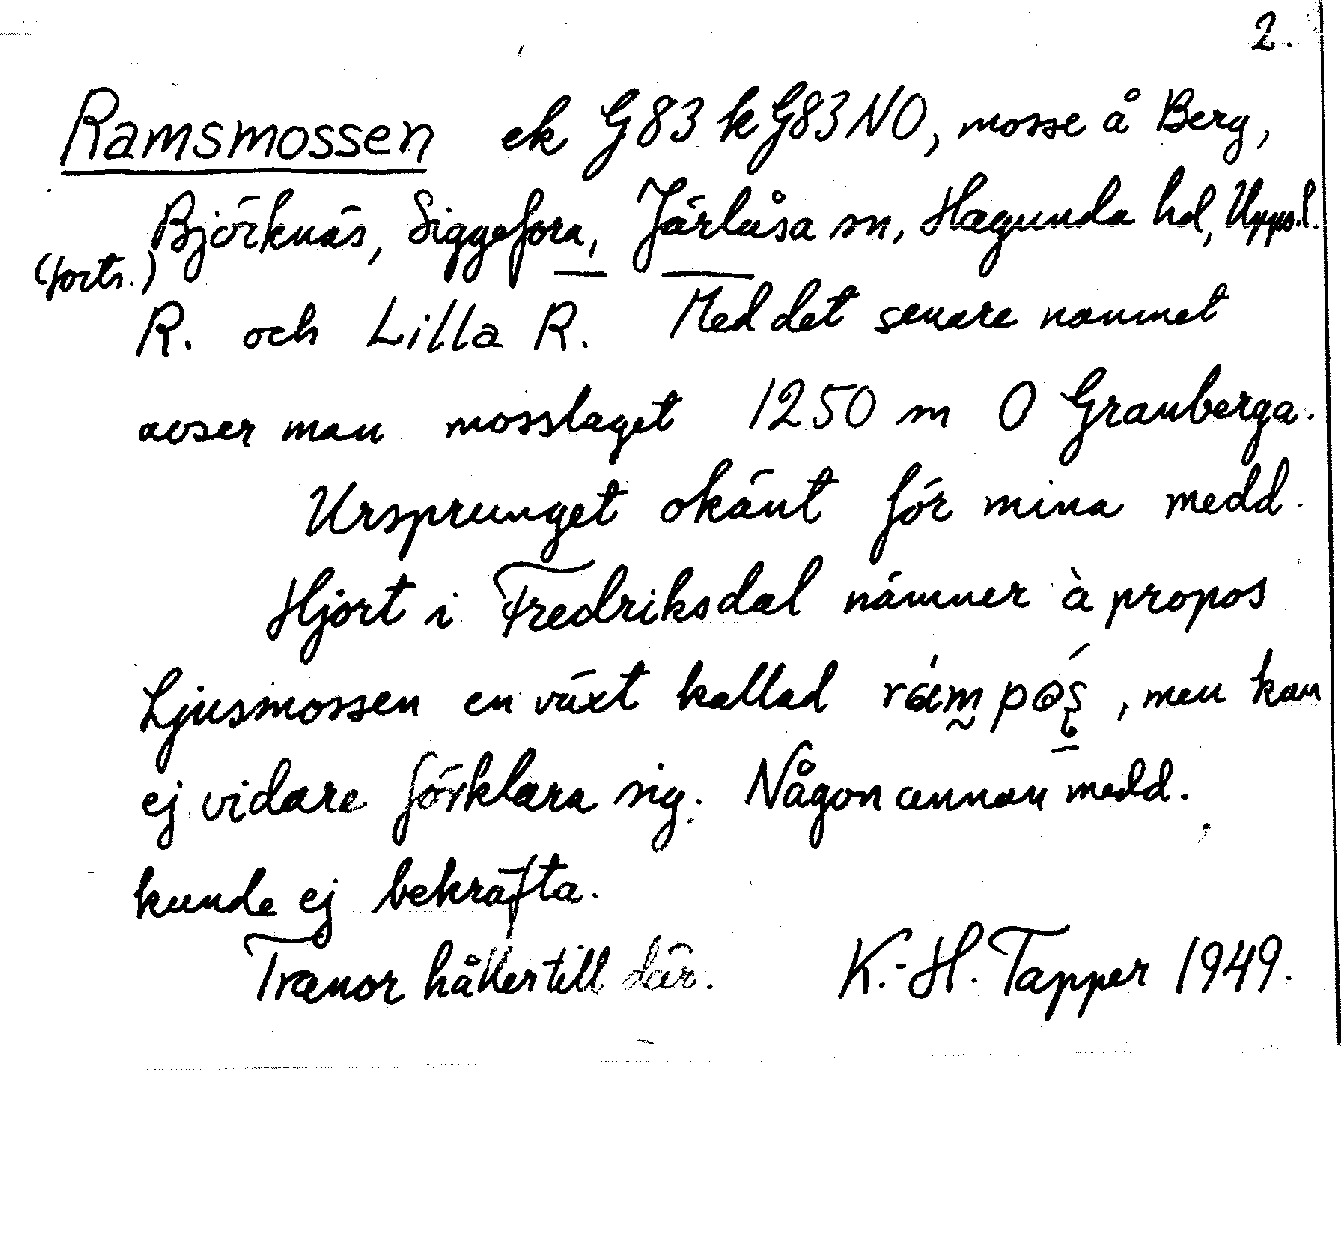 2.
Ramsmossen ek G83 k G83NO, mosse å Berg,
Björknäs, Siggefora, Järlåsa sn, Hagunda hd, Uppl.
(forts.)
R. och Lilla R. Med det senare namnet
avser man mosslaget 1250 m O Granberga.
Ursprunget okänt för mina medd.
Hjort i Fredriksdal nämner à propos
Ljusmossen en växt kallad , men kan
ej vidare förklara sig. Någon annan medd.
kunde ej bekräfta.
Tranor håller till där. K.-H. Tapper 1949.